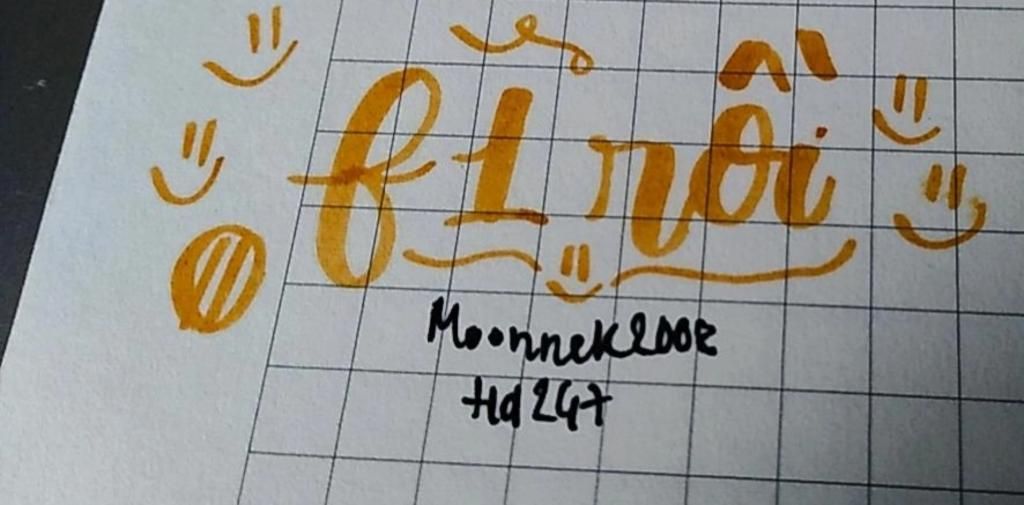 f1 rồi
Moonnek2008
Hd247